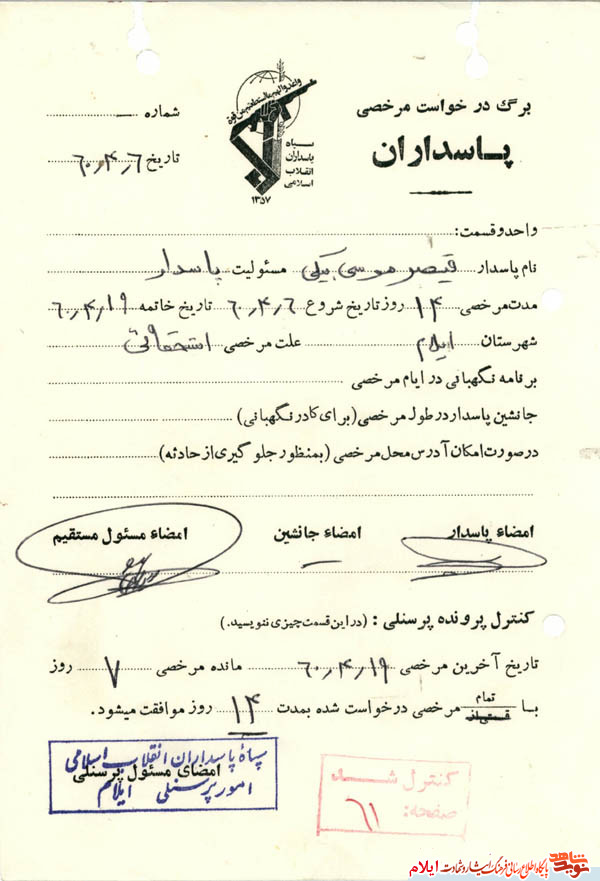 برگ در خواست مرخصی
پاسداران
شماره —
تاریخ ۶۰٫۴٫۶
سپاه
پاسداران
انقلاب
اسلامی
۱۳۵۷
واحد و قسمت:
نام پاسدار قیصر موسی بیگی مسئولیت پاسدار
مدت مرخصی ۱۴ روز تاریخ شروع ۶۰٫۴٫۶ تاریخ خاتمه ۶۰٫۴٫۱۹
شهرستان ایلام علت مرخصی استحقاقی
برنامه نگهبانی در ایام مرخصی
جانشین پاسدار در طول مرخصی (برای کادر نگهبانی)
در صورت امکان آدرس محل مرخصی (بمنظور جلو گیری از حادثه)
امضاء پاسدار امضاء جانشین امضاء مسئول مستقیم
کنترل پرونده پرسنلی: (در این قسمت چیزی ننویسید.)
تاریخ آخرین مرخصی ۶۰٫۴٫۱۹ مانده مرخصی ۷ روز
با تمام قسمتی از مرخصی درخواست شده بمدت ۱۴ روز موافقت میشود.
سپاه پاسداران انقلاب اسلامی
امضای مسئول پرسنلی
امور پرسنلی ایلام
کنترل شد
صفحه: ۶۱
نوید شاهد پایگاه اطلاع رسانی فرهنگ ایثار و شهادت ایلام